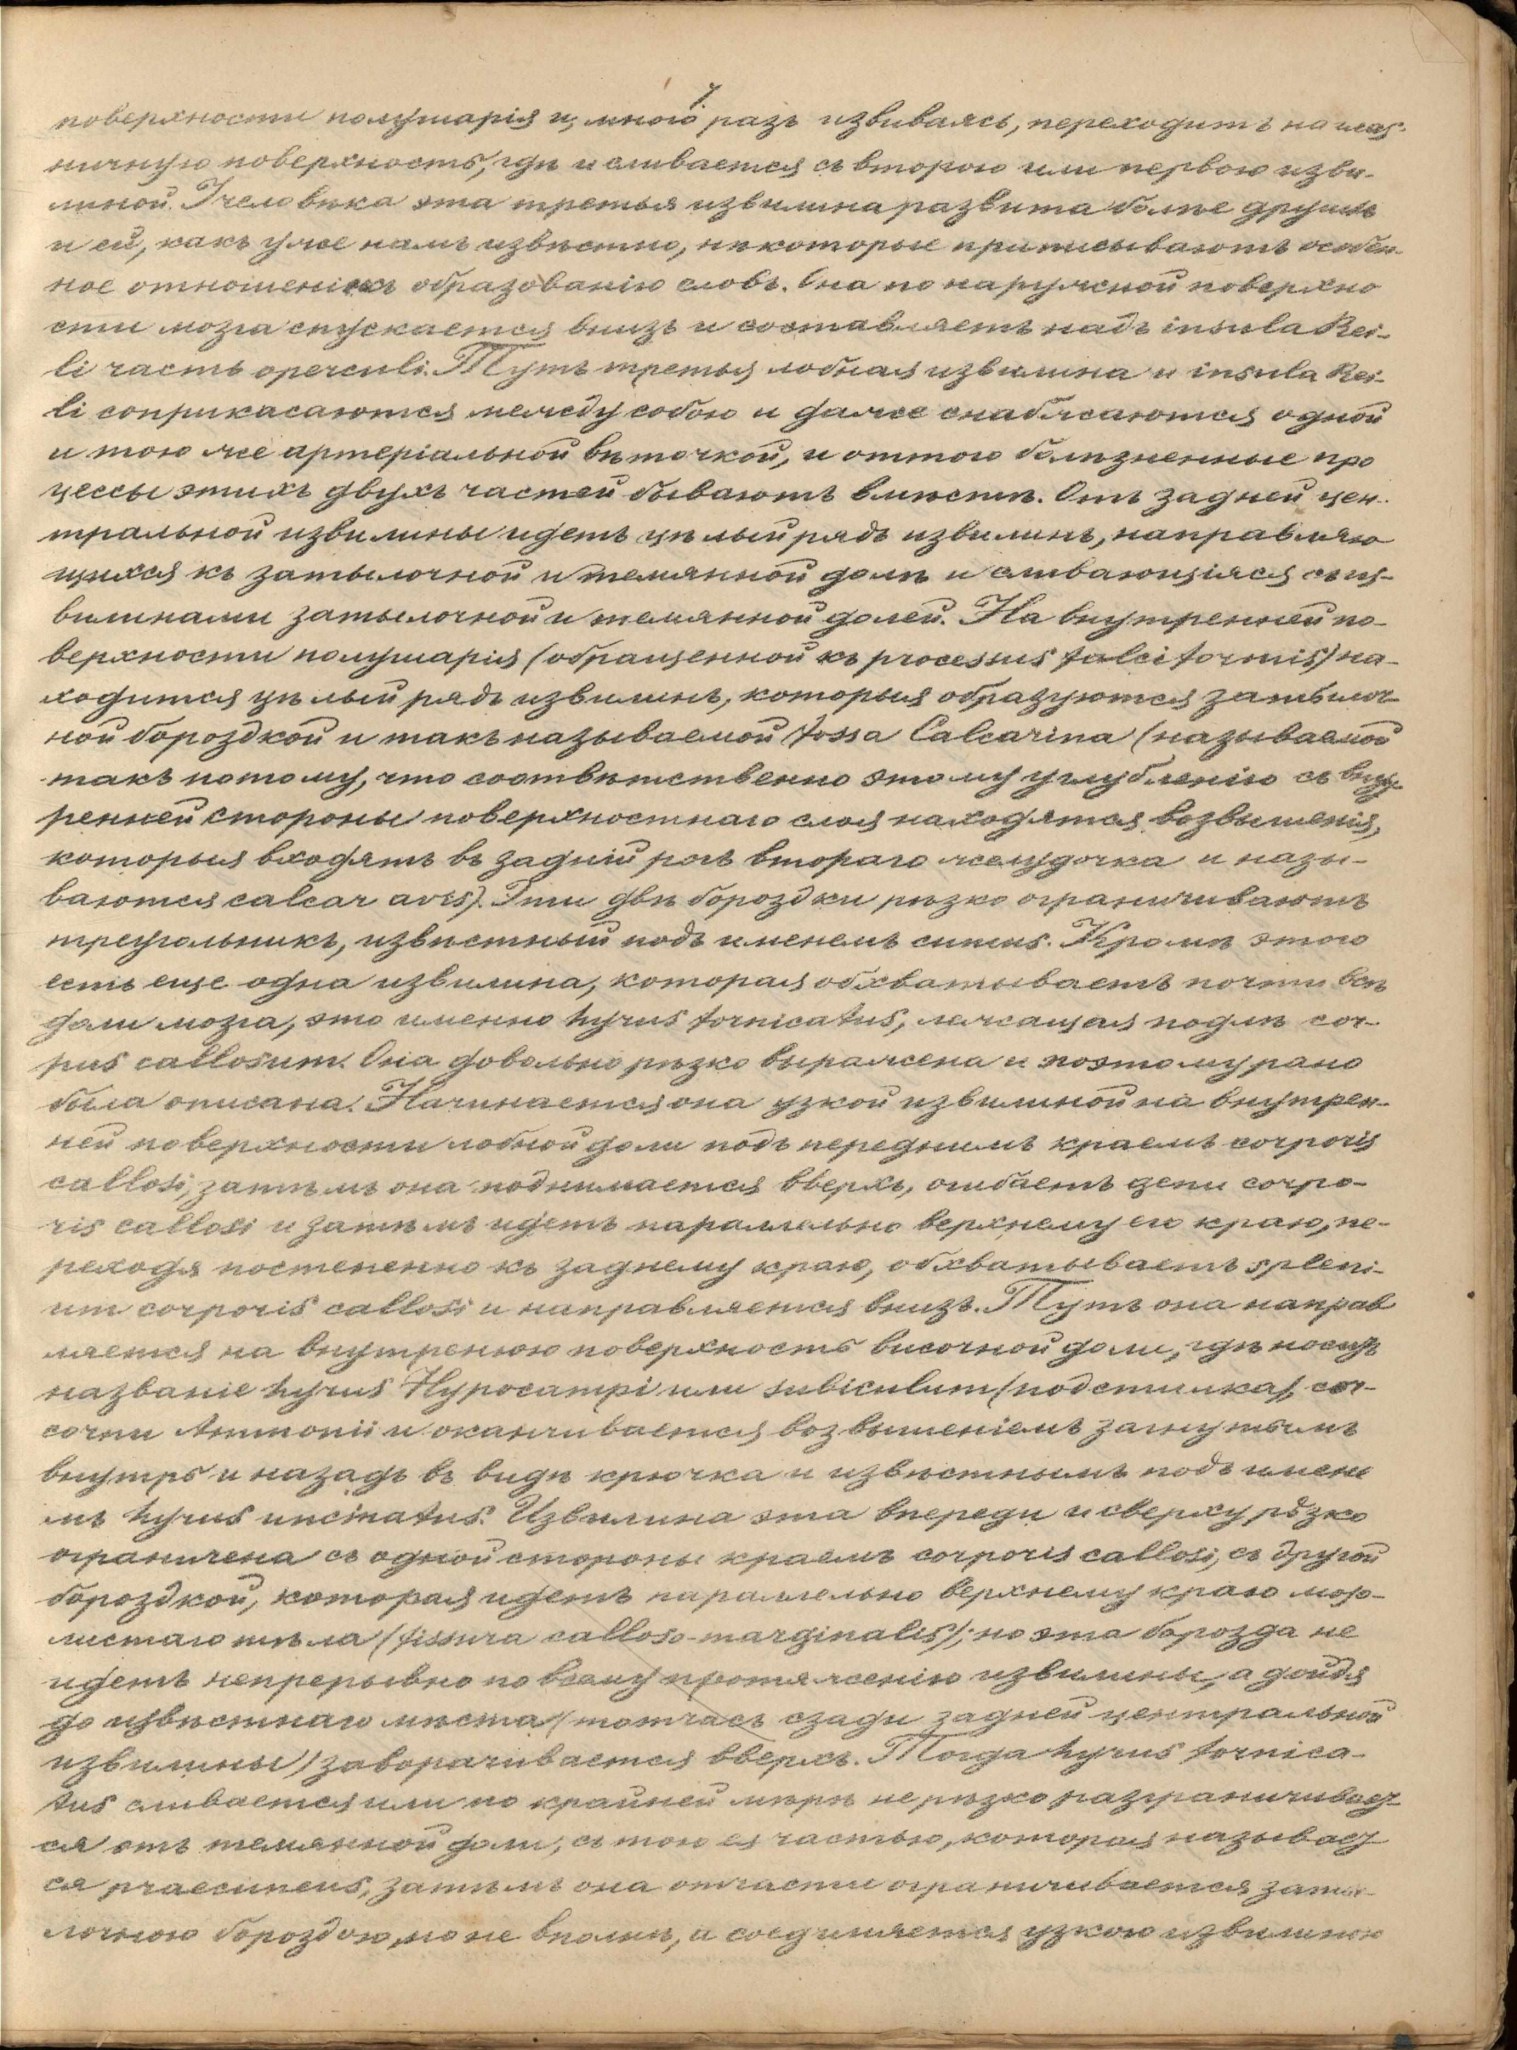 7.
поверхности полушарія и, много разъ извиваясь, переходитъ на глаз-
ничную поверхность, гдѣ и сливается съ второю или первою изви-
линой. У человѣка эта третья извилина развита болѣе другихъ
и ей, какъ уже намъ извѣстно, нѣкоторые приписываютъ особен-
ное отношеніе къ образованію словъ. Она по наружной поверхно
сти мозга спускается внизъ и составляетъ надъ insula Rei-
li часть operculi. Тутъ третья лобная извилина и insula Rei-
li соприкасаются между собою и даже снабжаются одной
и тою же артеріальной вѣточкой, и оттого болѣзненные про
цессы этихъ двухъ частей бываютъ вмѣстѣ. Отъ задней цен-
тральной извилины идетъ цѣлый рядъ извилинъ, направляю
щихся къ затылочной и темянной долѣ и сливающіяся съ из-
вилинами затылочной и темянной долей. На внутренней по-
верхности полушарія (обращенной къ processus falciformis) на-
ходится цѣлый рядъ извилинъ, которыя образуются затылоч-
ной бороздкой и такъ называемой fossa Calcarina (называемой
такъ потому, что соотвѣтственно этому углубленію съ внут-
ренней стороны поверхностнаго слоя находятся возвышенія,
которыя входятъ въ задній рогъ втораго желудочка и назы-
ваются calcar avis). Эти двѣ бороздки рѣзко ограничиваютъ
треугольникъ, извѣстный подъ именемъ cuneus. Кромѣ этого
есть еще одна извилина, которая обхватываетъ почти всѣ
доли мозга, это именно hyrus fornicatus, лежащая подлѣ cor-
pus callosum. Она довольно рѣзко выражена и поэтому рано
была описана. Начинается она узкой извилиной на внутрен-
ней поверхности лобной доли подъ переднимъ краемъ corporis
callosi, затѣмъ она поднимается вверхъ, огибаетъ genu corpo-
ris callosi и затѣмъ идетъ параллельно верхнему его краю, пе-
реходя постепенно къ заднему краю, обхватываетъ spleni-
um corporis callosi и направляется внизъ. Тутъ она направ
ляется на внутренюю поверхность височной доли, гдѣ носитъ
названіе hyrus Hypocampi или subiculum (подстилка), cor-
corни Ammonii и оканчивается возвышеніемъ загнутымъ
внутрь и назадъ въ видѣ крючка и извѣстнымъ подъ имене
мъ hyrus uncinatus. Извилина эта впереди и сверху рѣзко
ограничена съ одной стороны краемъ corporis callosi, съ другой
бороздкой, которая идетъ параллельно верхнему краю мозо-
листаго тѣла (fissura calloso-marginalis); но эта борозда не
идетъ непрерывно по всему протяженію извилины, а дойдя
до извѣстнаго мѣста (тотчасъ сзади задней центральной
извилины) заворачивается вверхъ. Тогда hyrus fornica-
tus сливается или по крайней мѣрѣ не рѣзко разграничивает-
ся отъ темянной доли, съ тою ея частью, которая называет-
ся praecuneus, затѣмъ она отчасти ограничивается заты-
лочною бороздою, но не вполнѣ, и соединяется узкою извилиною